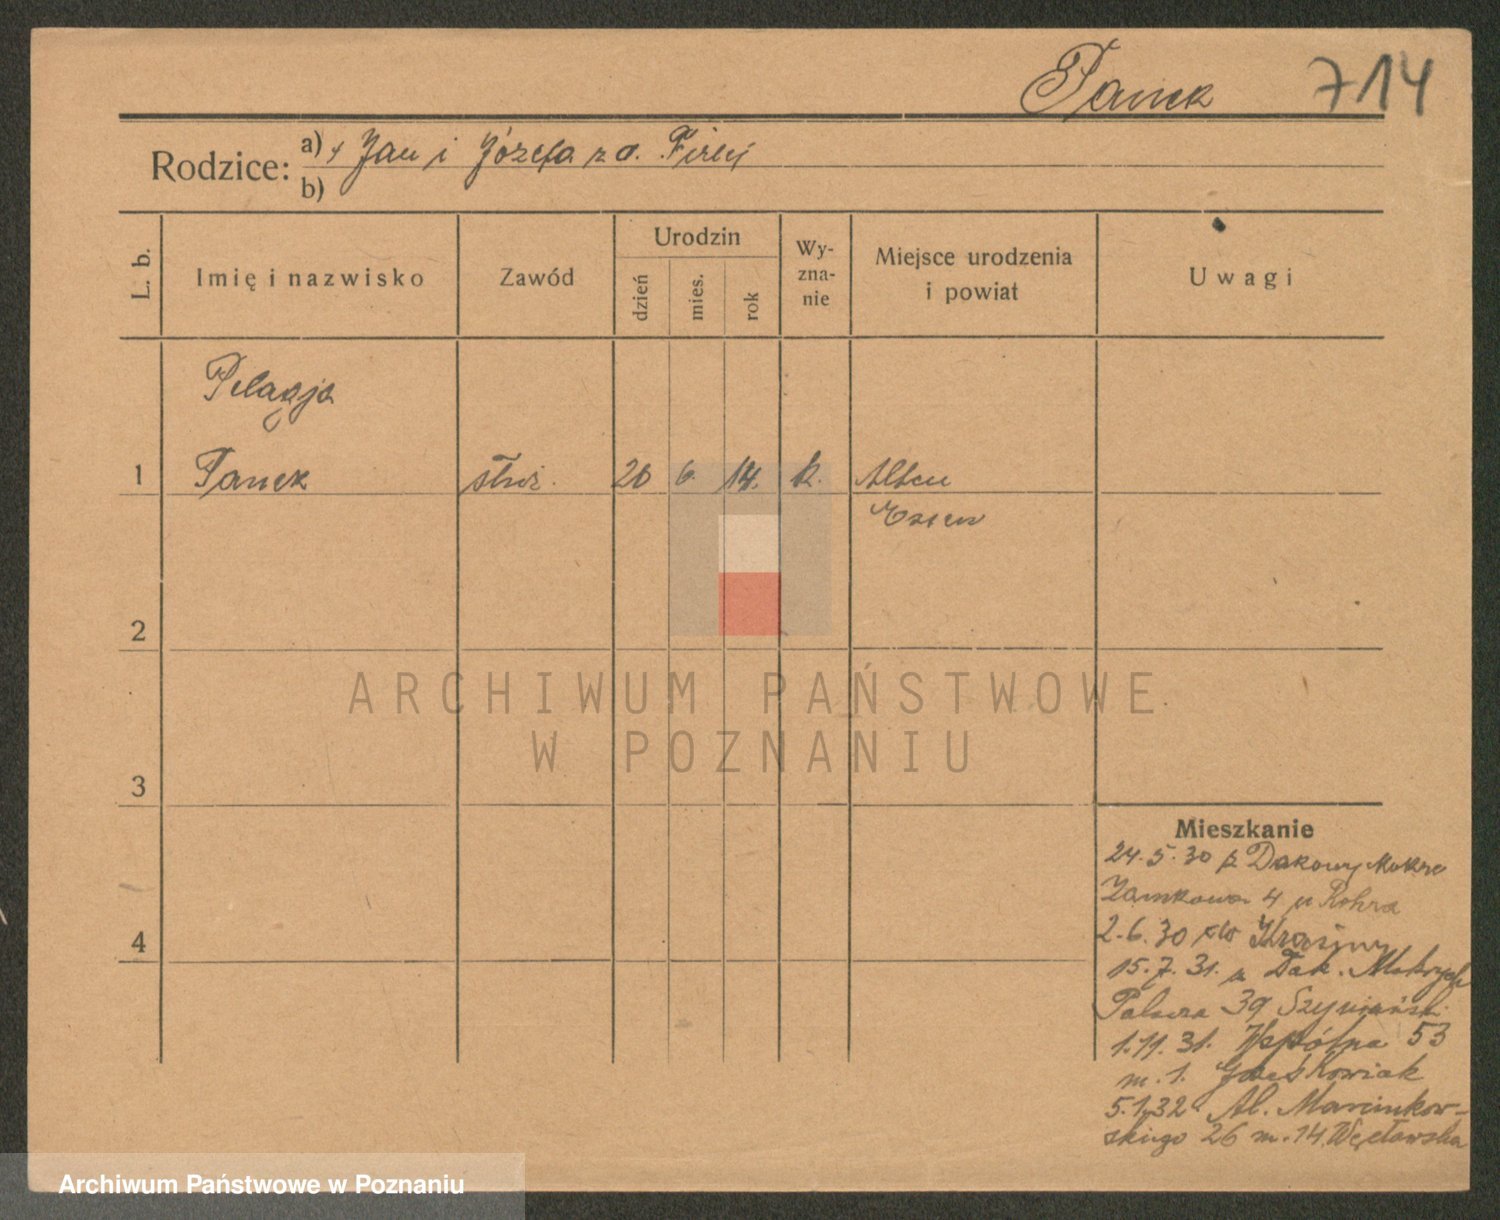 Panek 714
Rodzice: a) Jan i Józefa z d. Firlej
b)
L. b. Imię i nazwisko Zawód Urodzin dzień mies. rok Wyznanie Miejsce urodzenia i powiat Uwagi
Pelagja
1 Panek służ. 20 6. 14. k. Alten
Essen
2
3
4
ARCHIWUM PAŃSTWOWE
W POZNANIU
Mieszkanie
24.5.30 z Dakowy Mokre
Zamkowa 4 u Rohra
2.6.30 do
15.7.31. z Dak. Mokrych
39 Szymański
1.11.31. Wspólna 53
m. 1. Jaśkowiak
5.1.32 Al. Marcinkow-
skiego 26 m. 14 Węcławska
Archiwum Państwowe w Poznaniu